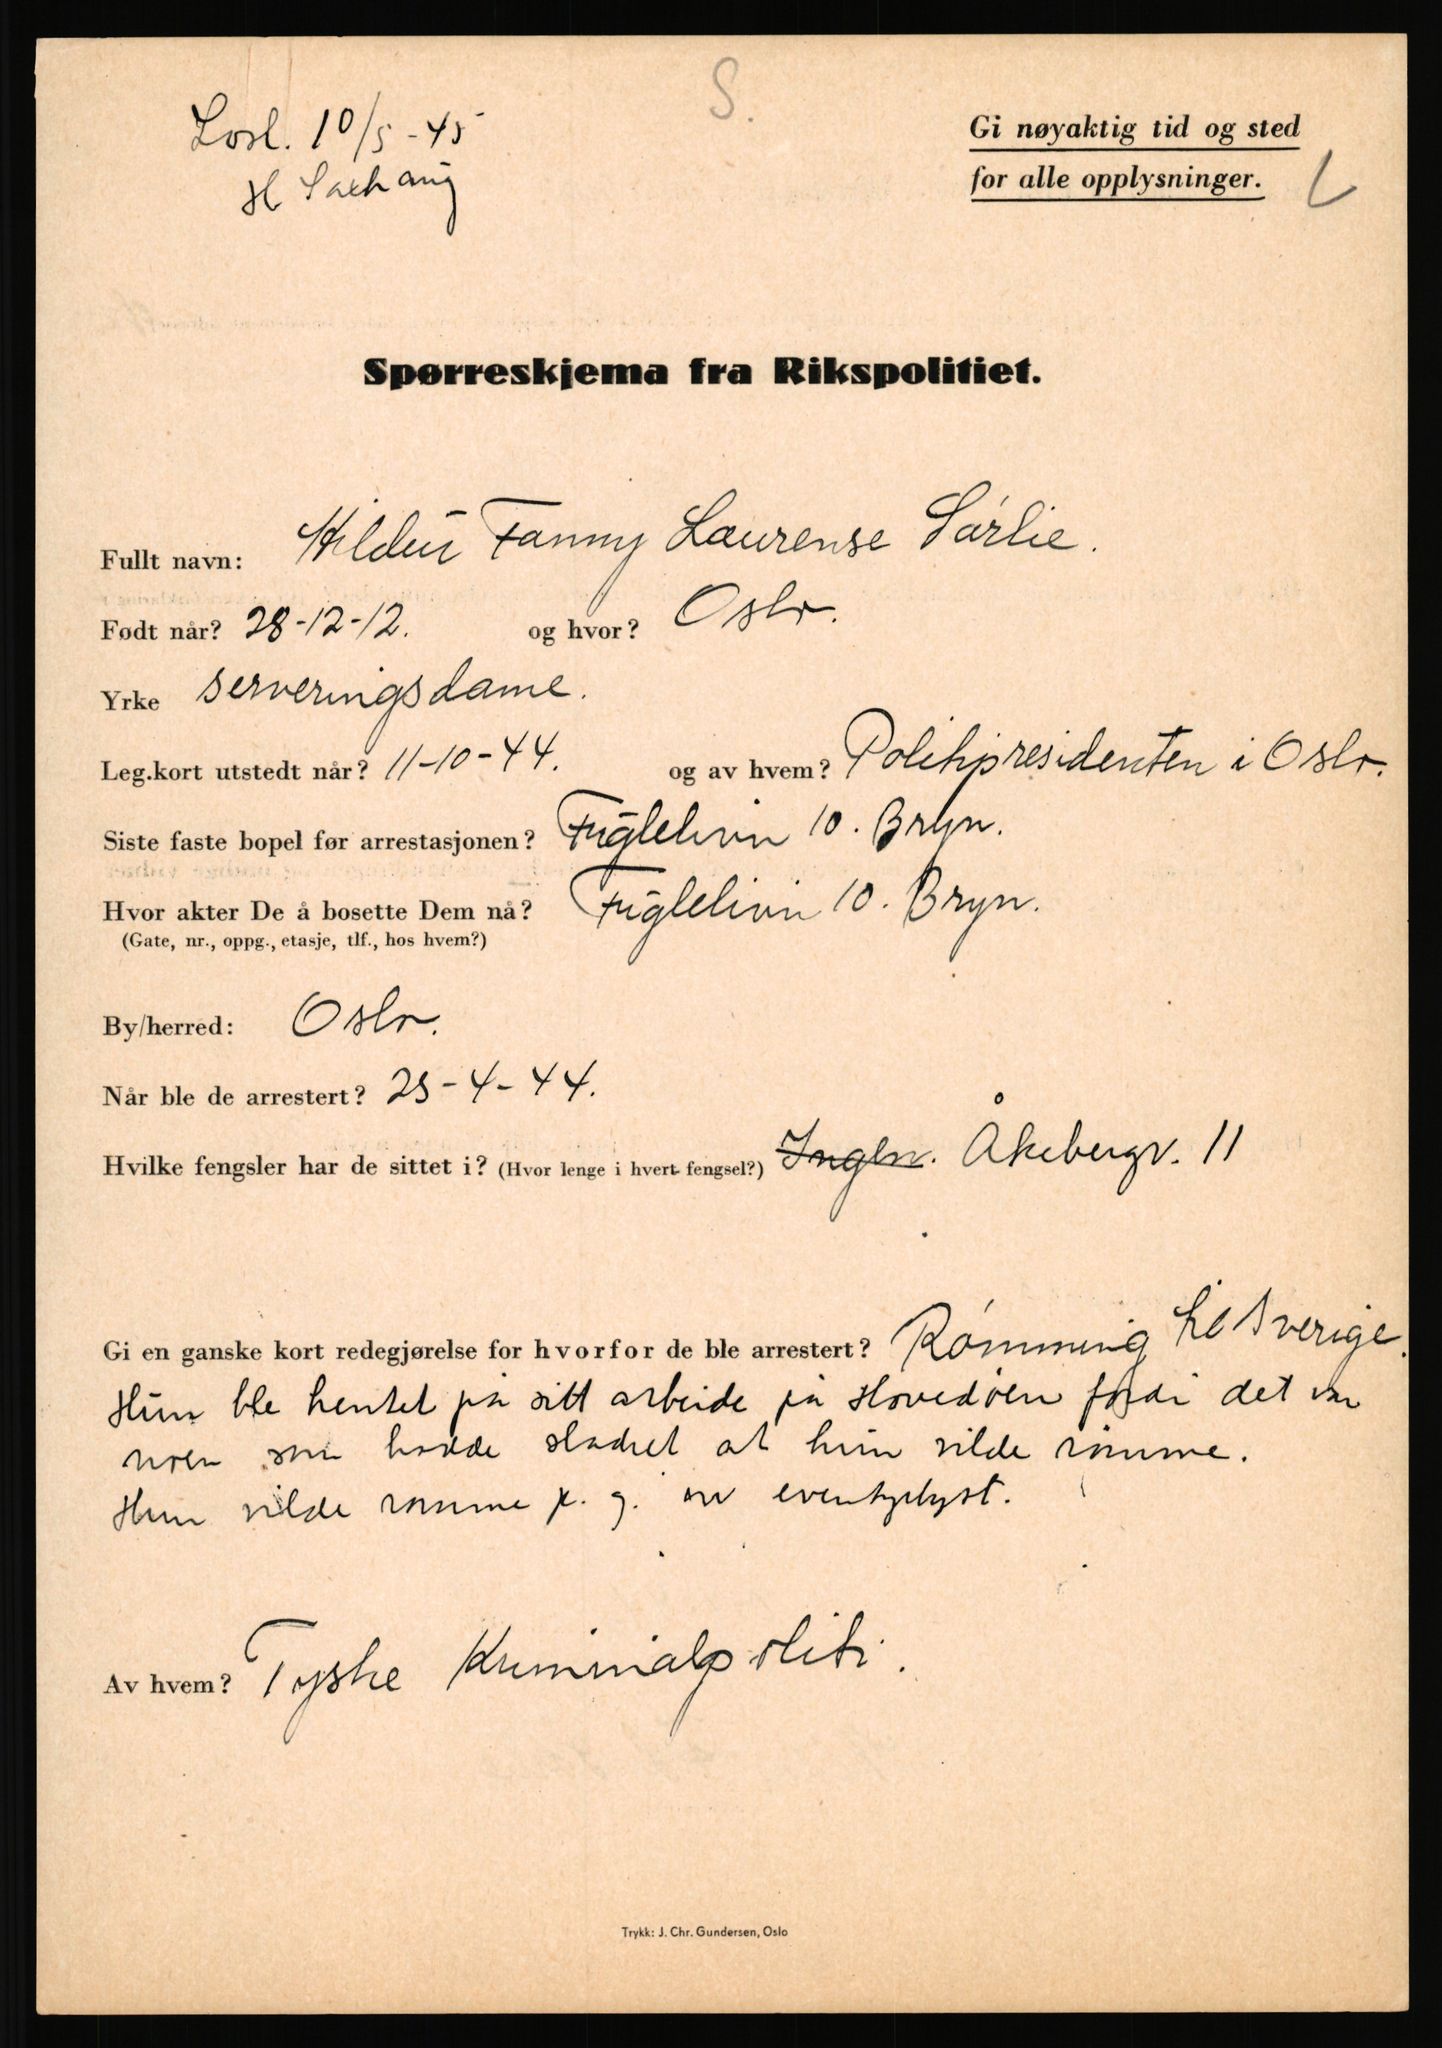 S.
Losl. 10/5-45
H Saxhaug
Gi nøyaktig tid og sted
for alle opplysninger.
Spørreskjema fra Rikspolitiet.
Fullt navn: Hildur Fanny Laurense Sørlie.
Født når? 28-12-12. og hvor? Oslo.
Yrke serveringsdame.
Leg.kort utstedt når? 11-10-44. og av hvem? Politipresidenten i Oslo.
Siste faste bopel før arrestasjonen? Fuglelivn 10. Bryn.
Hvor akter De å bosette Dem nå? Fuglelivn 10. Bryn.
(Gate, nr., oppg., etasje, tlf., hos hvem?)
By/herred: Oslo.
Når ble de arrestert? 25-4-44.
Hvilke fengsler har de sittet i? (Hvor lenge i hvert fengsel?) Åkebergv. 11
Gi en ganske kort redegjørelse for hvorfor de ble arrestert? Rømming til Sverige.
Hun ble hentet på sitt arbeide på Hovedøen fordi det var
noen som hadde sladret at hun vilde rømme.
Hun vilde rømme p. g. av eventyrlyst.
Av hvem? Tyske Kriminalpoliti.
Trykk: J. Chr. Gundersen, Oslo